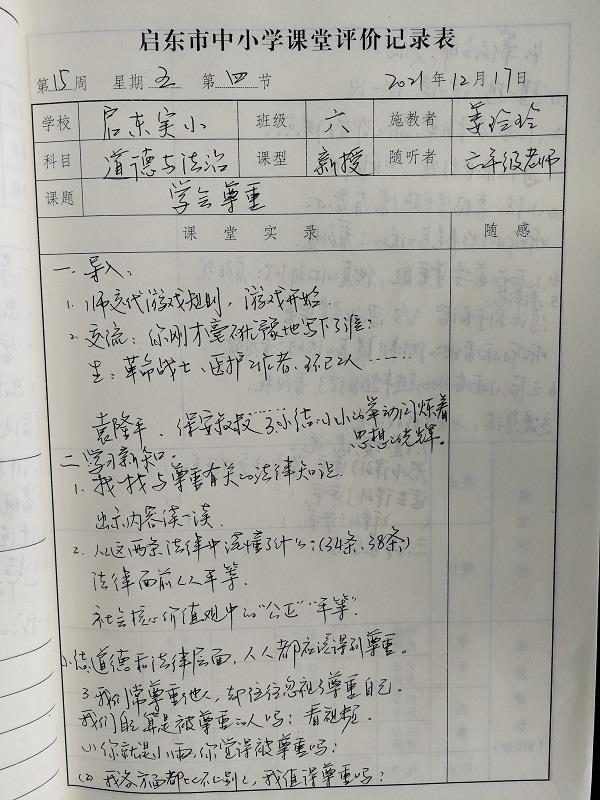 启东市中小学课堂评价记录表
第15周 星期五 第四节 2021年12月17日
学校 启东实小 班级 六 施教者 姜玲玲
科目 道德与法治 课型 新授 随听者 六年级老师
课题 学会尊重
课堂实录 随感
一、导入:
1. 师交代游戏规则,游戏开始.
2. 交流:你刚才毫不犹豫地写下了谁?
生:革命战士、医护工作者、环卫工人……
袁隆平、保安叔叔 小结:小小的举动闪烁着
思想的光辉。
二、学习新知.
1. 找一找与尊重有关的法律知识.
出示内容读一读.
2. 从这两条法律中读懂了什么?(34条、38条)
法律面前人人平等.
社会核心价值观中的“公正”“平等”.
小结:道德和法律层面,人人都应该得到尊重。
3. 我们常尊重他人,却往往忽视了尊重自己.
我们自己算是被尊重的人吗?看视频.
(1) 你就是小雨,你觉得被尊重吗?
(2) 我各方面都比不上别人,我值得尊重吗?